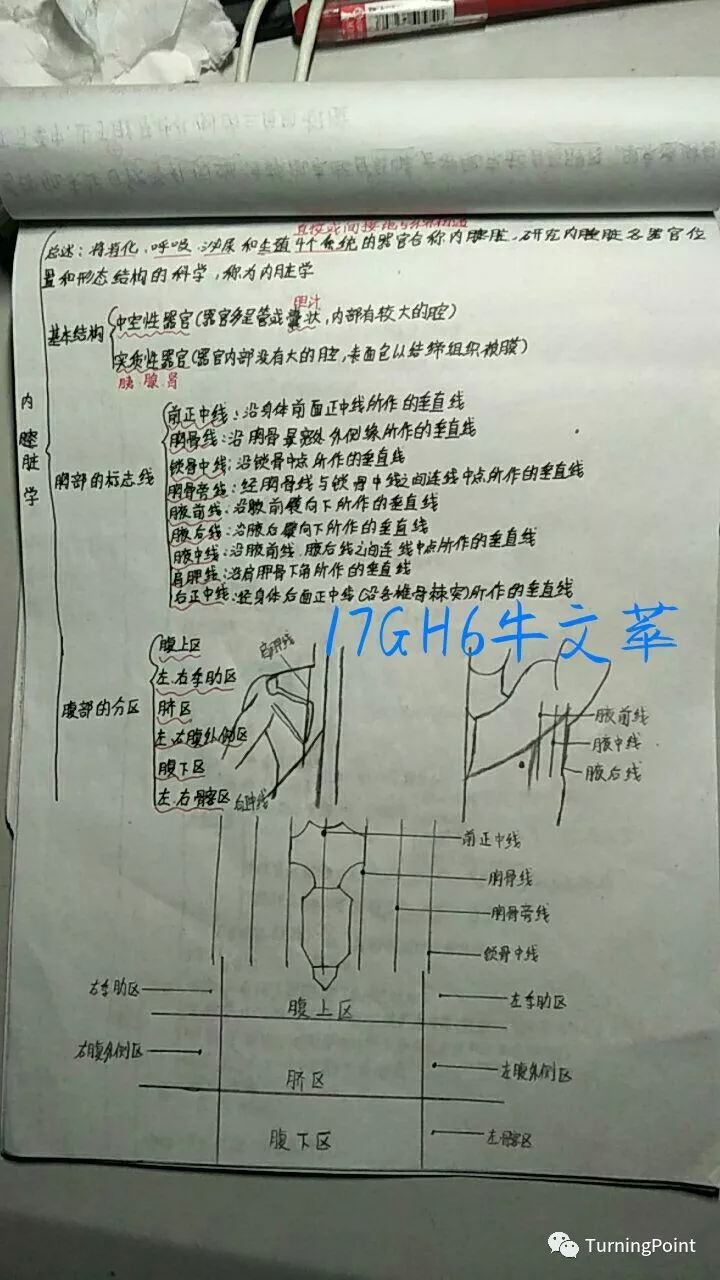 总述：将消化、呼吸、泌尿和生殖4个系统的器官合称内脏，研究内脏各器官位
置和形态结构的科学，称为内脏学
胆汁
基本结构
中空性器官(器官多呈管或囊状，内部有较大的腔)
实质性器官(器官内部没有大的腔，表面包以结缔组织被膜)
胰 腺 肾
内脏学
胸部的标志线
前正中线：沿身体前面正中线所作的垂直线
胸骨线：沿胸骨最宽处外侧缘所作的垂直线
锁骨中线：沿锁骨中点所作的垂直线
胸骨旁线：经胸骨线与锁骨中线之间连线中点所作的垂直线
腋前线：沿腋前襞向下所作的垂直线
腋后线：沿腋后襞向下所作的垂直线
腋中线：沿腋前线、腋后线之间连线中点所作的垂直线
肩胛线：沿肩胛骨下角所作的垂直线
后正中线：经身体后面正中线(沿各椎骨棘突)所作的垂直线
17GH6牛文苹
腹部的分区
腹上区
左、右季肋区
脐区
左、右腹外侧区
腹下区
左、右髂区
肩胛线
后正中线
腋前线
腋中线
腋后线
前正中线
胸骨线
胸骨旁线
锁骨中线
右季肋区
腹上区
左季肋区
右腹外侧区
脐区
左腹外侧区
腹下区
左髂区
TurningPoint